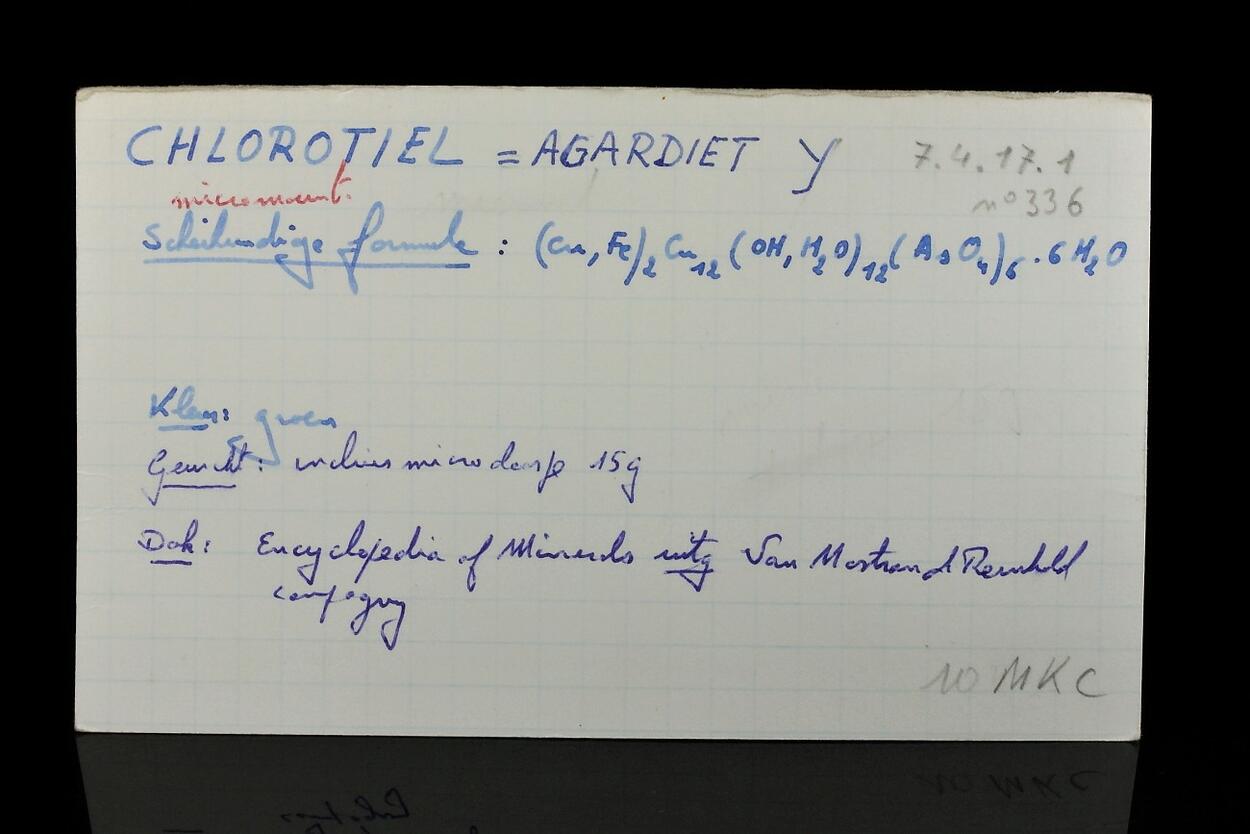 CHLOROTIEL = AGARDIET Y 7.4.17.1
micromount. n° 336
Scheikundige formule : (Cu, Fe)2 Cu12 (OH, H2O)12 (AsO4)6 . 6 H2O
Kleur: groen
Gewicht: inclius microdoosje 15g
Dok: Encyclopedia of Minerals uitg Van Nostrand Reinhold
compagny
10 MKC